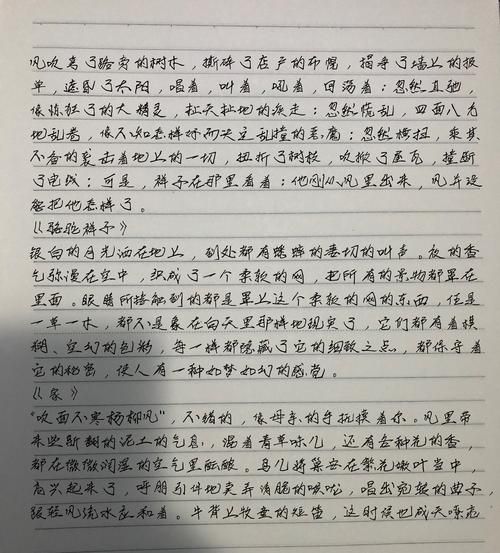 风吹弯了路旁的树木，撕碎了店户的布幌，揭净了墙上的报
单，遮昏了太阳，唱着，叫着，吼着，回荡着；忽然直驰，
像惊狂了的大精灵，扯天扯地的疾走；忽然慌乱，四面八方
地乱卷，像不知怎样好而决定乱撞的恶魔；忽然横扫，乘其
不备的袭击着地上的一切，扭折了树枝，吹掀了屋瓦，撞断
了电线；可是，祥子在那里看着；他刚从风里出来，风并没
能把他怎样了。
《骆驼祥子》
银白的月光洒在地上，到处都有蟋蟀的凄切的叫声。夜的香
气弥漫在空中，织成了一个柔软的网，把所有的景物都罩在
里面。眼睛所接触到的都是罩上这个柔软的网的东西，任是
一草一木，都不是象在白天里那样地现实了，它们都有着模
糊、空幻的色彩，每一样都隐藏了它的细致之点，都保守着
它的秘密，使人有一种如梦如幻的感觉。
《家》
“吹面不寒杨柳风”，不错的，像母亲的手抚摸着你。风里带
来些新翻的泥土的气息，混着青草味儿，还有各种花的香，
都在微微润湿的空气里酝酿。鸟儿将巢安在繁花嫩叶当中，
高兴起来了，呼朋引伴地卖弄清脆的喉咙，唱出宛转的曲子，
跟轻风流水应和着。牛背上牧童的短笛，这时候也成天嘹亮